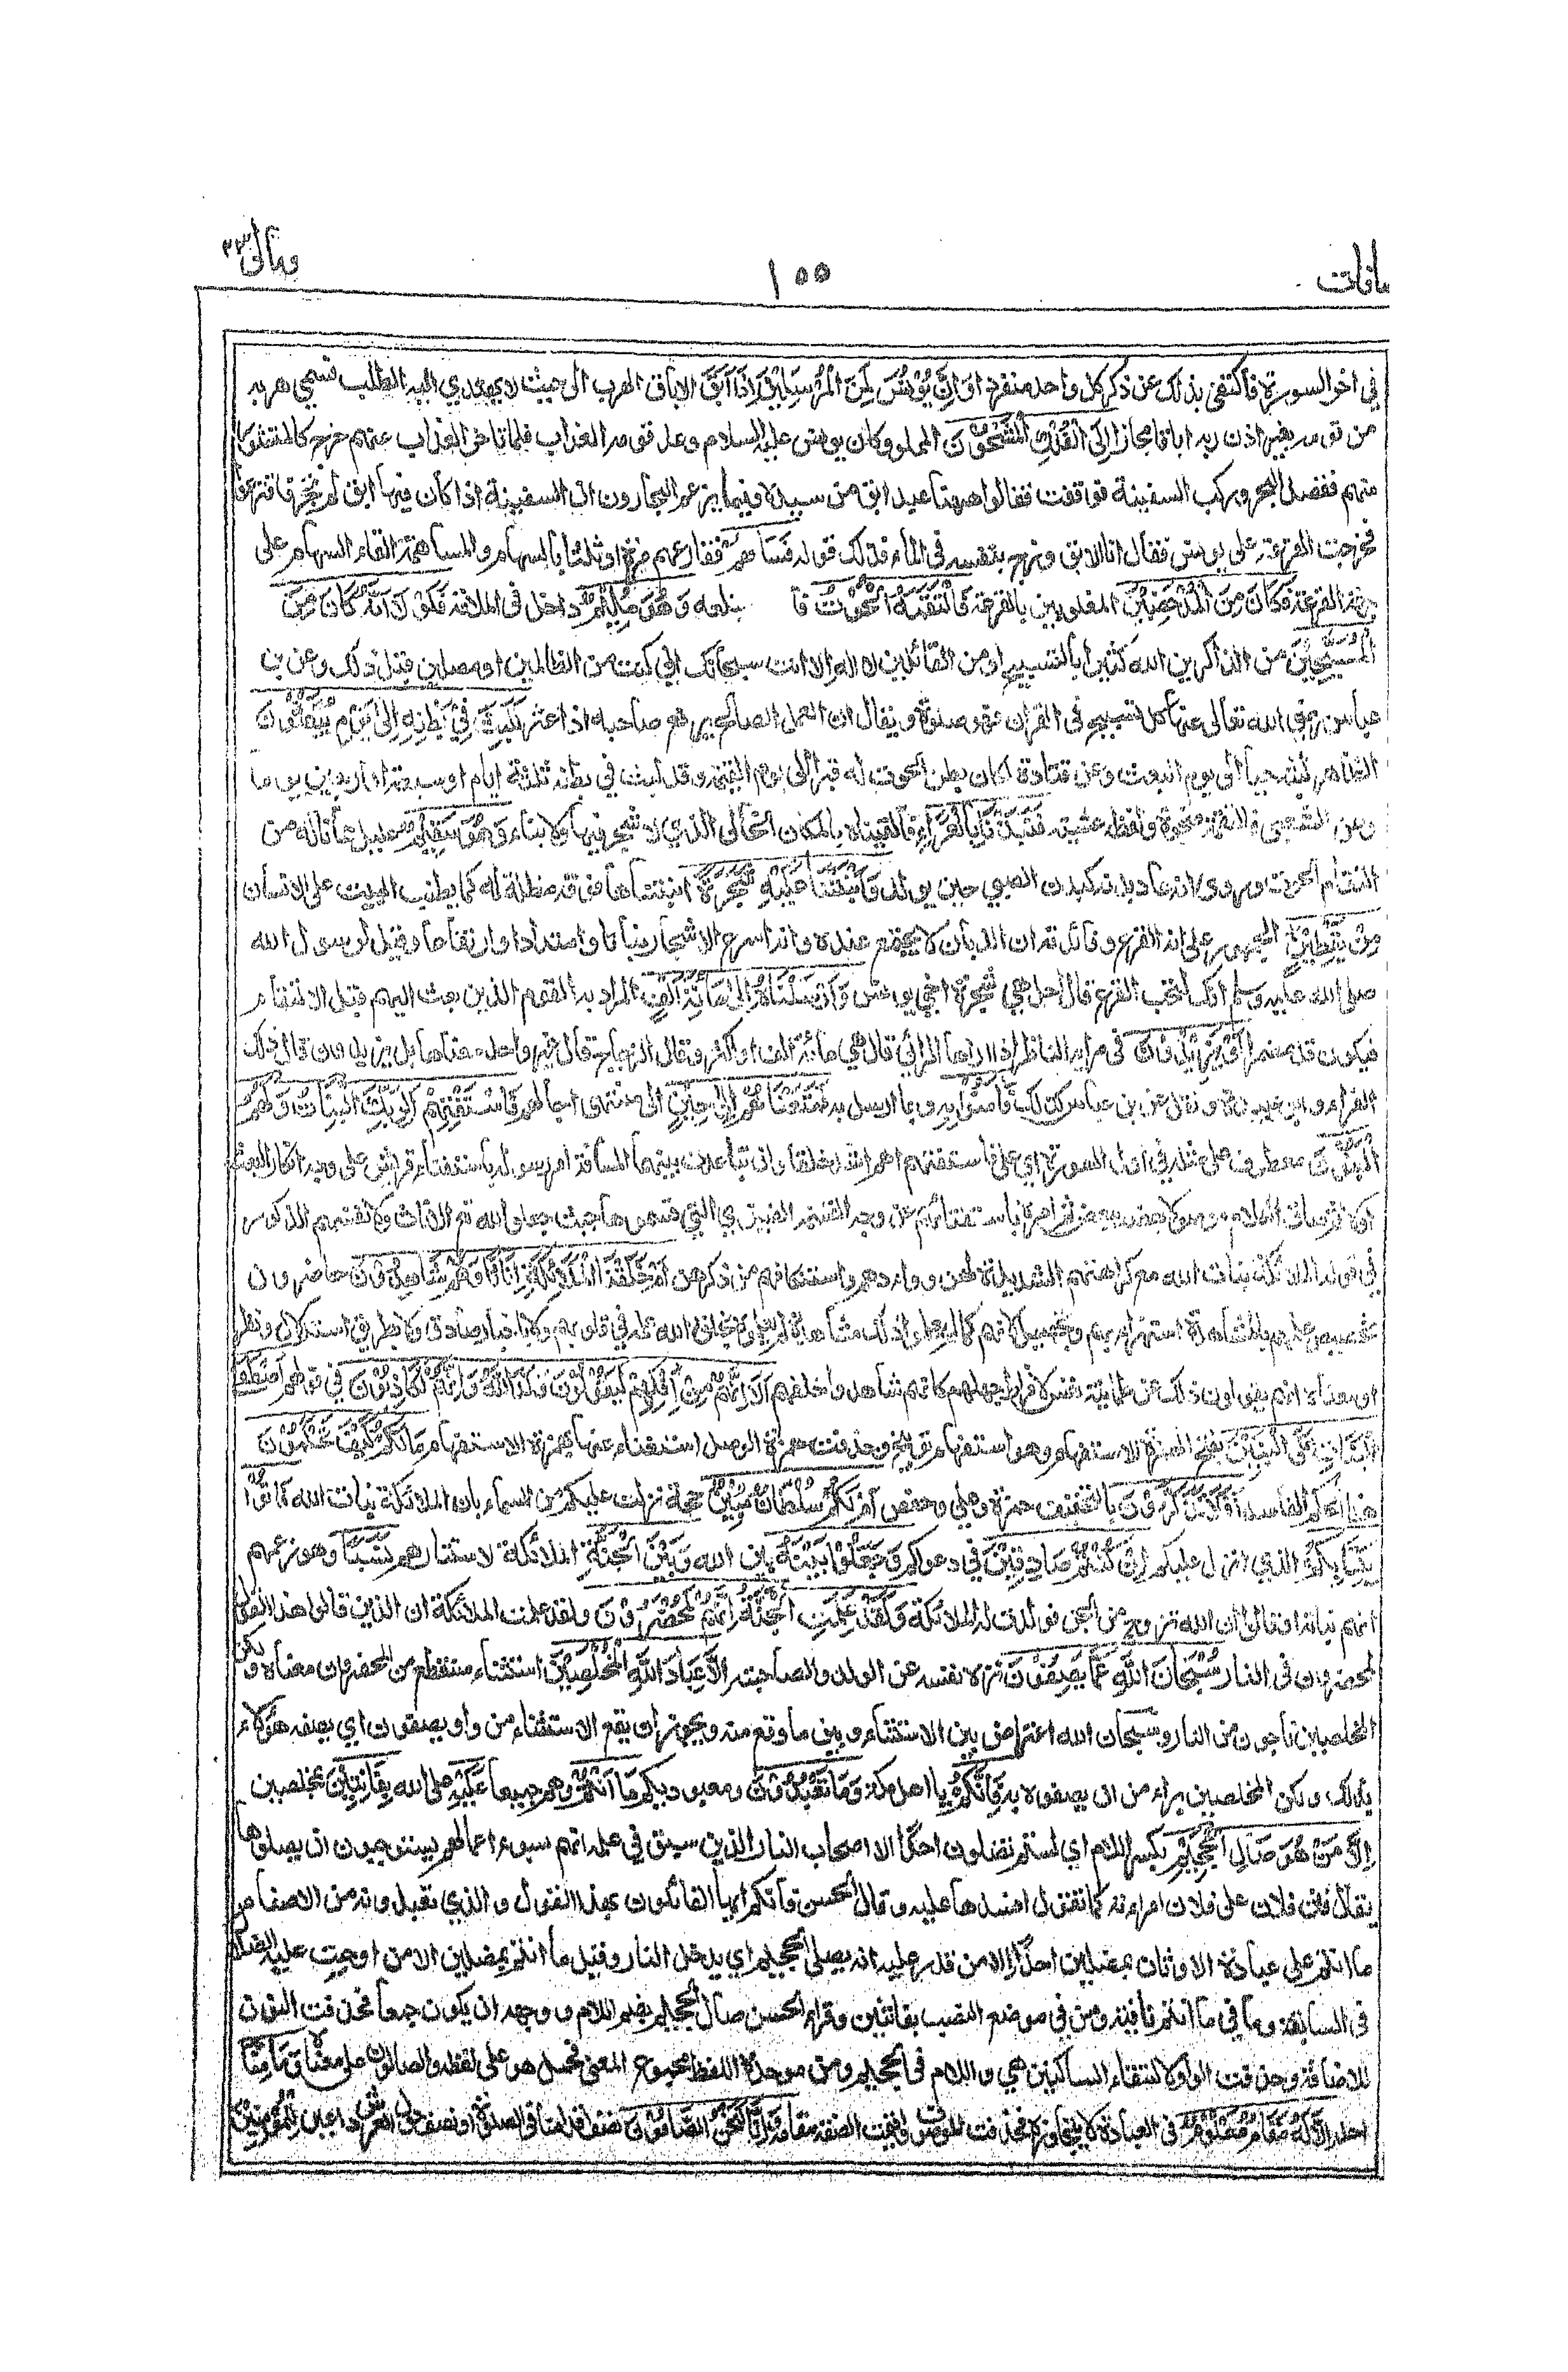 ومالي ٢٣
١٥٥
صافات
في اخر السورة فاكتفى بذلك عن ذكر كل واحد منفردا وَاِنَّ يُوْنُسَ لَمِنَ الْمُرْسَلِيْنَ اِذْ اَبَقَ الاباق الهرب الى حيث لا يهتدي اليه الطلب فسمي هربه
من قومه بغير اذن ربه اباقا مجازا اِلَى الْفُلْكِ الْمَشْحُوْنِ المملو وكان يونس عليه السلام وعد قومه العذاب فلما تاخر العذاب عنهم خرج كالمتشور
منهم فقصد البحر وركب السفينة فوقفت فقالوا ههنا عبد ابق من سيده وفيما يزعم البحارون ان السفينة اذا كان فيها ابق لم تجر فاقترعوا
فخرجت القرعة على يونس فقال انا الابق وزج بنفسه في الماء فذلك قوله فَسَاهَمَ فقارعهم مرة او ثلثا بالسهام والمساهمة القاء السهام على
جهة القرعة فَكَانَ مِنَ الْمُدْحَضِيْنَ المغلوبين بالقرعة فَالْتَقَمَهُ الْحُوْتُ فا بتلعه وَهُوَ مُلِيْمٌ داخل في الملامة فَلَوْ لَا اَنَّهُ كَانَ مِنَ
الْمُسَبِّحِيْنَ من الذاكرين الله كثيرا بالتسبيح او من القائلين لا اله الا انت سبحانك اني كنت من الظالمين او مصلين قبل ذلك وعن بن
عباس رضي الله تعالى عنهما كل تسبيح في القران فهو صلوة ويقال ان العمل الصالح يرفع صاحبه اذا عثر لَلَبِثَ فِيْ بَطْنِهِ اِلَى يَوْمِ يُبْعَثُوْنَ
الظاهر لبثه حيا الى يوم البعوث وعن قتادة لكان بطن الحوت له قبرا الى يوم القيمة وقد لبث في بطنه ثلثة ايام او سبعة او اربعين يوما
وعن الشعبي التقمه ضحوة ولفظه عشية فَنَبَذْنَاهُ بِالْعَرَاءِ فالقيناه بالمكان الخالي الذي لا شجر فيه ولا بناء وَهُوَ سَقِيْمٌ عليل مما ناله من
التقام الحوت وروي انه عاد بدنه كبدن الصبي حين يولد وَاَنْبَتْنَا عَلَيْهِ شَجَرَةً انبتناها فوقه مظلة له كما يطنب البيت على الانسان
مِنْ يَقْطِيْنٍ الجمهور على انه القرع وفائدته ان الذبان لا يجتمع عنده وانه اسرع الاشجار نباتا وامتدادا وارتفاعا وقيل لرسول الله
صلى الله عليه وسلم انك لتحب القرع قال اجل هي شجرة اخي يونس وَاَرْسَلْنَاهُ اِلَى مِائَةِ اَلْفٍ المراد به القوم الذين بعث اليهم قبل الالتقام
فيكون قد مضمرا اَوْ يَزِيْدُوْنَ في مراى الناظر اذا راها الرائي قال هي مائة الف او اكثر وقال الزجاج قال غير واحد معناها بل يزيدون قال ذلك
الفراء وابو عبيدة ونقل عن بن عباس كذلك فَاٰمَنُوْا به وبما ارسل به فَمَتَّعْنَاهُمْ اِلَى حِيْنٍ الى منتهى اجالهم فَاسْتَفْتِهِمْ اَلِرَبِّكَ الْبَنَاتُ وَلَهُمُ
الْبَنُوْنَ معطوف على مثله في اول السورة اي على فاستفتهم اهم اشد خلقا وان تباعدت بينهما المسافة امر رسوله باستفتاء قريش على وجه انكار البعث
اولا ثم ساق الكلام موصولا بعضه ببعض ثم امره باستفتائهم عن وجه القسمة الضيزى التي قسموها حيث جعلوا لله تع الاناث ولانفسهم الذكور
في قولهم الملائكة بنات الله مع كراهتهم الشديدة لهن ووادهم واستنكافهم من ذكرهن اَمْ خَلَقْنَا الْمَلٰٓئِكَةَ اِنَاثًا وَهُمْ شَاهِدُوْنَ حاضرون
تخصيص علمهم بالمشاهدة استهزاء بهم وتجهيل لانهم كما لم يعلموا ذلك مشاهدة لم يعلموه بخلق الله علمه في قلوبهم ولا باخبار صادق ولا بطريق استدلال ونظر
او معناه انهم يقولون ذلك عن طمانينة نفس لافراط جهلهم كانهم شاهدوا خلقهم اَلَا اِنَّهُمْ مِنْ اِفْكِهِمْ لَيَقُوْلُوْنَ وَلَدَ اللهُ وَاِنَّهُمْ لَكَاذِبُوْنَ في قولهم اَصْطَفَى
الْبَنَاتِ عَلَى الْبَنِيْنَ بفتح الهمزة للاستفهام وهو استفهام توبيخ وحذفت همزة الوصل استغناء عنها بهمزة الاستفهام مَا لَكُمْ كَيْفَ تَحْكُمُوْنَ
هذا الحكم الفاسد اَفَلَا تَذَكَّرُوْنَ بالتخفيف حمزة وعلي وحفص اَمْ لَكُمْ سُلْطَانٌ مُبِيْنٌ حجة نزلت عليكم من السماء بان الملائكة بنات الله فَاْتُوْا
بِكِتَابِكُمُ الذي انزل عليكم اِنْ كُنْتُمْ صَادِقِيْنَ في دعواكم وَجَعَلُوْا بَيْنَهُ بين الله وَبَيْنَ الْجِنَّةِ الملائكة لاستتارهم نَسَبًا وهو زعمهم
انهم بناته او قالوا ان الله تزوج من الجن فولدت له الملائكة وَلَقَدْ عَلِمَتِ الْجِنَّةُ اِنَّهُمْ لَمُحْضَرُوْنَ ولقد علمت الملائكة ان الذين قالوا هذا القول
لمحضرون في النار سُبْحَانَ اللهِ عَمَّا يَصِفُوْنَ نزه نفسه عن الولد والصاحبة اِلَّا عِبَادَ اللهِ الْمُخْلَصِيْنَ استثناء منقطع من المحضرون معناه ولكن
المخلصين ناجون من النار وسبحان الله اعتراض بين الاستثناء وبين ما وقع منه ويجوز ان يقع الاستثناء من واو يصفون اي يصفه هؤلاء
بذلك ولكن المخلصين براء من ان يصفوه به فَاِنَّكُمْ يا اهل مكة وَمَا تَعْبُدُوْنَ ومعبوديكم مَا اَنْتُمْ وهم جميعا عَلَيْهِ على الله بِفَاتِنِيْنَ بمضلين
اِلَّا مَنْ هُوَ صَالِ الْجَحِيْمِ بكسر اللام اي لستم تضلون احدا الا اصحاب النار الذين سبق في علمه انهم بسوء اعمالهم يستوجبون ان يصلوها
يقال فتن فلان على فلان امراته كما تقول افسدها عليه وقال الحسن فانكم ايها القائلون بهذا القول والذي تعبدونه من الاصنام
ما انتم على عبادة الاوثان بمضلين احدا الا من قدر عليه انه يصلى الجحيم اي يدخل النار وقيل ما انتم بمضلين الا من اوجبت عليه الضلالة
في السابقة وما في ما انتم نافية ومن في موضع النصب بفاتنين وقرا الحسن صال الجحيم بضم اللام ووجهه ان يكون جمعا فحذفت النون
للاضافة وحذفت الواو لالتقاء الساكنين هي واللام في الجحيم ومن موحد اللفظ مجموع المعنى فحمل هو على لفظه والصالون على معناه وَمَا مِنَّا
احد اِلَّا لَهُ مَقَامٌ مَعْلُوْمٌ في العبادة لا يتجاوزه فحذفت الموصوف واقيمت الصفة مقامه وَاِنَّا لَنَحْنُ الصَّافُّوْنَ نصف اقدامنا في الصلوة او نصف حول العرش داعين للمؤمنين